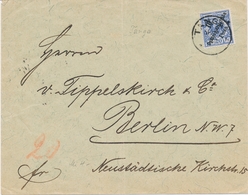 Herren
v. Tippelskirch & Co
Berlin N.W. 7
Neustädtische Kirchstr. 15
fr